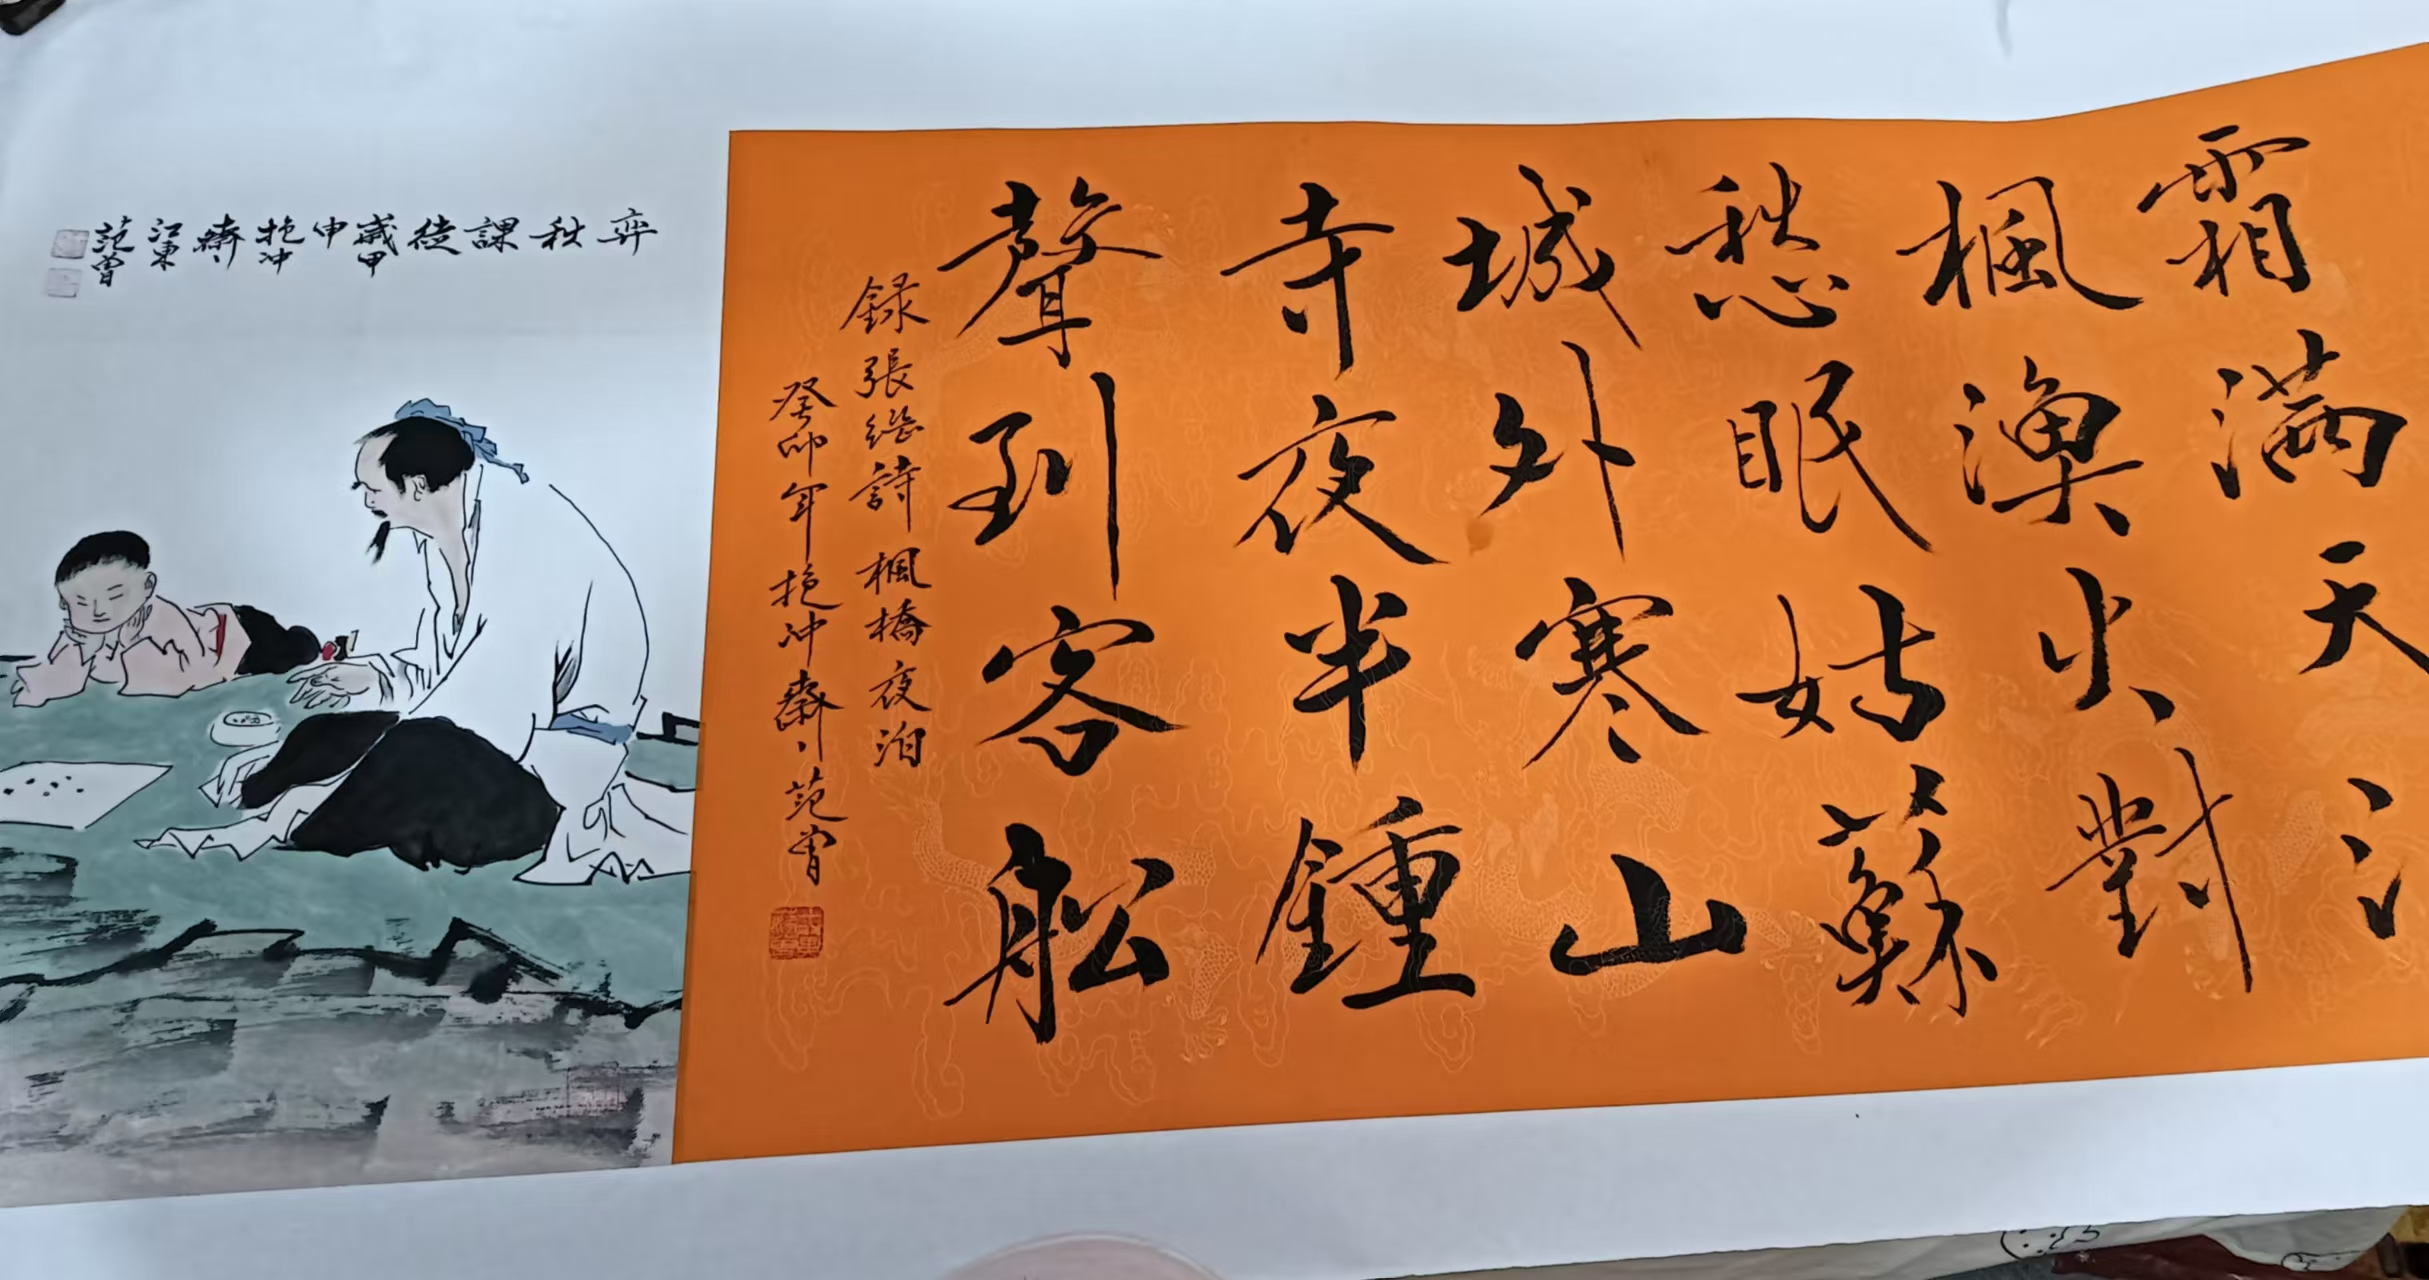 霜滿天
楓漁火對
愁眠姑蘇
城外寒山
寺夜半鍾
聲到客舩
録張継詩楓橋夜泊
癸卯年抱冲齋范曾
弈秋課徒歲甲申抱冲齋江東范曾